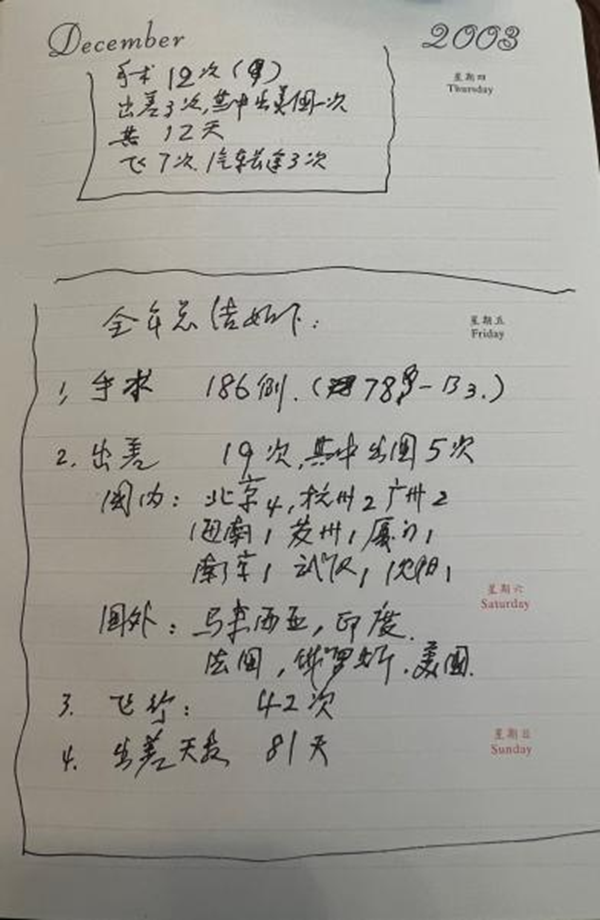 December 2003
星期四
Thursday
手术 12次 (
出差3次,其中出美国一次
共 12天
飞7次.汽车长途3次
星期五
Friday
全年总结如下:
1, 手术 186例. (
2. 出差 19次,其中出国5次
国内: 北京4,杭州2广州2
海南1 苏州1 厦门1
南京1 武汉1 沈阳1
星期六
Saturday
国外: 马来西亚,印度.
法国,俄罗斯.美国.
3. 飞行: 42次
星期日
Sunday
4. 出差天数 81天